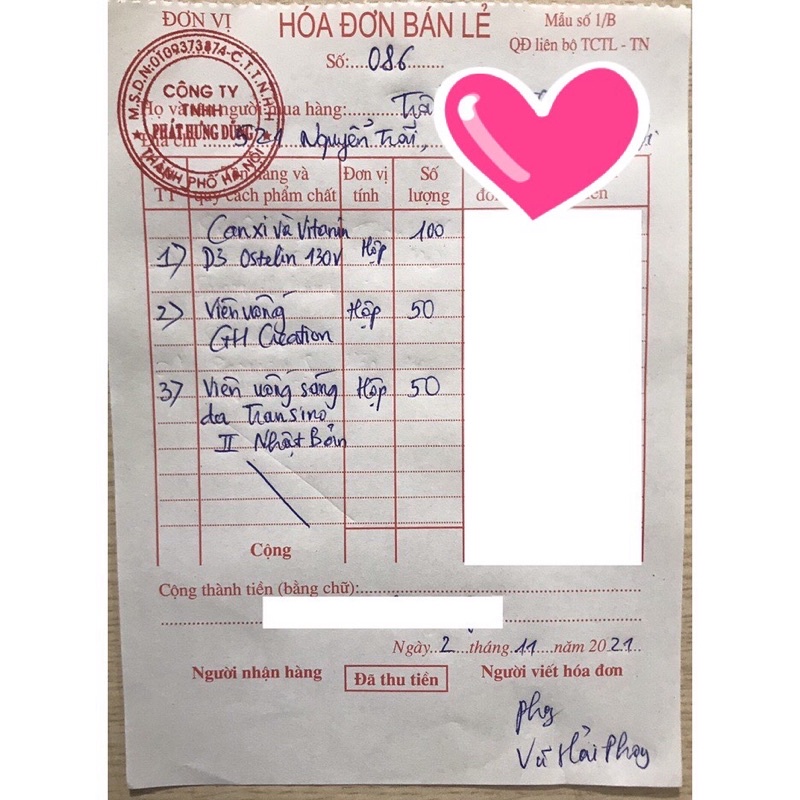 ĐƠN VỊ
HÓA ĐƠN BÁN LẺ
Mẫu số 1/B
QĐ liên bộ TCTL - TN
Số:....086........
M.S.D.N:0109373874-C.T.T.N.H.H
CÔNG TY
TNHH
PHÁT HƯNG DŨNG
★ THÀNH PHỐ HÀ NỘI ★
Họ và người mua hàng:
Địa chỉ: 521 Nguyễn Trãi,
TT
hàng và quy cách phẩm chất
Đơn vị tính
Số lượng
Canxi và Vitamin 100
1) D3 Ostelin 130v Hộp
2) Viên uống Hộp 50
GH Creation
3) Viên uống sáng Hộp 50
da Transino
II Nhật Bản
Cộng
Cộng thành tiền (bằng chữ):
Ngày..2...tháng..11...năm 2021..
Người nhận hàng
Đã thu tiền
Người viết hóa đơn
Vũ Hải Phong